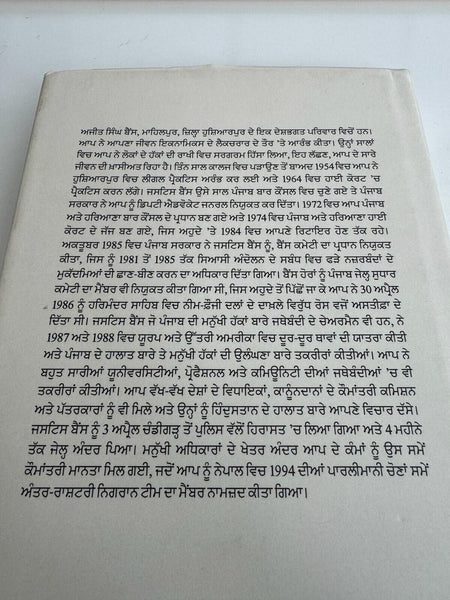 ਅਜੀਤ ਸਿੰਘ ਬੈਂਸ, ਮਾਹਿਲਪੁਰ, ਜ਼ਿਲ੍ਹਾ ਹੁਸ਼ਿਆਰਪੁਰ ਦੇ ਇਕ ਦੇਸ਼ਭਗਤ ਪਰਿਵਾਰ ਵਿਚੋਂ ਹਨ।
ਆਪ ਨੇ ਆਪਣਾ ਜੀਵਨ ਇਕਨਾਮਿਕਸ ਦੇ ਲੈਕਚਰਾਰ ਦੇ ਤੌਰ ’ਤੇ ਆਰੰਭ ਕੀਤਾ। ਉਨ੍ਹਾਂ ਸਾਲਾਂ
ਵਿਚ ਆਪ ਨੇ ਲੋਕਾਂ ਦੇ ਹੱਕਾਂ ਦੀ ਰਾਖੀ ਵਿਚ ਸਰਗਰਮ ਹਿੱਸਾ ਲਿਆ, ਇਹ ਲੱਛਣ, ਆਪ ਦੇ ਸਾਰੇ
ਜੀਵਨ ਦੀ ਖ਼ਾਸੀਅਤ ਰਿਹਾ ਹੈ। ਤਿੰਨ ਸਾਲ ਕਾਲਜ ਵਿਚ ਪੜਾਉਣ ਤੋਂ ਬਾਅਦ 1954 ਵਿਚ ਆਪ ਨੇ
ਹੁਸ਼ਿਆਰਪੁਰ ਵਿਚ ਲੀਗਲ ਪ੍ਰੈਕਟਿਸ ਅਰੰਭ ਕਰ ਲਈ ਅਤੇ 1964 ਵਿਚ ਹਾਈ ਕੋਰਟ ’ਚ
ਪ੍ਰੈਕਟਿਸ ਕਰਨ ਲੱਗੇ। ਜਸਟਿਸ ਬੈਂਸ ਉਸੇ ਸਾਲ ਪੰਜਾਬ ਬਾਰ ਕੌਂਸਲ ਵਿਚ ਚੁਣੇ ਗਏ ਤੇ ਪੰਜਾਬ
ਸਰਕਾਰ ਨੇ ਆਪ ਨੂੰ ਡਿਪਟੀ ਐਡਵੋਕੇਟ ਜਨਰਲ ਨਿਯੁਕਤ ਕਰ ਦਿੱਤਾ। 1972 ਵਿਚ ਆਪ ਪੰਜਾਬ
ਅਤੇ ਹਰਿਆਣਾ ਬਾਰ ਕੌਂਸਲ ਦੇ ਪ੍ਰਧਾਨ ਬਣ ਗਏ ਅਤੇ 1974 ਵਿਚ ਪੰਜਾਬ ਅਤੇ ਹਰਿਆਣਾ ਹਾਈ
ਕੋਰਟ ਦੇ ਜੱਜ ਬਣ ਗਏ, ਜਿਸ ਅਹੁਦੇ ’ਤੇ 1984 ਵਿਚ ਆਪਣੇ ਰਿਟਾਇਰ ਹੋਣ ਤੱਕ ਰਹੇ।
ਅਕਤੂਬਰ 1985 ਵਿਚ ਪੰਜਾਬ ਸਰਕਾਰ ਨੇ ਜਸਟਿਸ ਬੈਂਸ ਨੂੰ, ਬੈਂਸ ਕਮੇਟੀ ਦਾ ਪ੍ਰਧਾਨ ਨਿਯੁਕਤ
ਕੀਤਾ, ਜਿਸ ਨੂੰ 1981 ਤੋਂ 1985 ਤੱਕ ਸਿਆਸੀ ਅੰਦੋਲਨ ਦੇ ਸਬੰਧ ਵਿਚ ਫੜੇ ਨਜ਼ਰਬੰਦਾਂ ਦੇ
ਮੁਕੱਦਮਿਆਂ ਦੀ ਛਾਣ-ਬੀਣ ਕਰਨ ਦਾ ਅਧਿਕਾਰ ਦਿੱਤਾ ਗਿਆ। ਬੈਂਸ ਹੋਰਾਂ ਨੂੰ ਪੰਜਾਬ ਜੇਲ੍ਹ ਸੁਧਾਰ
ਕਮੇਟੀ ਦਾ ਮੈਂਬਰ ਵੀ ਨਿਯੁਕਤ ਕੀਤਾ ਗਿਆ ਸੀ, ਜਿਸ ਅਹੁਦੇ ਤੋਂ ਪਿੱਛੋਂ ਜਾ ਕੇ ਆਪ ਨੇ 30 ਅਪ੍ਰੈਲ
1986 ਨੂੰ ਹਰਿਮੰਦਰ ਸਾਹਿਬ ਵਿਚ ਨੀਮ-ਫ਼ੌਜੀ ਦਲਾਂ ਦੇ ਦਾਖ਼ਲੇ ਵਿਰੁੱਧ ਰੋਸ ਵਜੋਂ ਅਸਤੀਫ਼ਾ ਦੇ
ਦਿੱਤਾ ਸੀ। ਜਸਟਿਸ ਬੈਂਸ ਜੋ ਪੰਜਾਬ ਦੀ ਮਨੁੱਖੀ ਹੱਕਾਂ ਬਾਰੇ ਜਥੇਬੰਦੀ ਦੇ ਚੇਅਰਮੈਨ ਵੀ ਹਨ, ਨੇ
1987 ਅਤੇ 1988 ਵਿਚ ਯੂਰਪ ਅਤੇ ਉੱਤਰੀ ਅਮਰੀਕਾ ਵਿਚ ਦੂਰ-ਦੂਰ ਥਾਵਾਂ ਦੀ ਯਾਤਰਾ ਕੀਤੀ
ਅਤੇ ਪੰਜਾਬ ਦੇ ਹਾਲਾਤ ਬਾਰੇ ਤੇ ਮਨੁੱਖੀ ਹੱਕਾਂ ਦੀ ਉਲੰਘਣਾ ਬਾਰੇ ਤਕਰੀਰਾਂ ਕੀਤੀਆਂ। ਆਪ ਨੇ
ਬਹੁਤ ਸਾਰੀਆਂ ਯੂਨੀਵਰਸਿਟੀਆਂ, ਪ੍ਰੋਫੈਸ਼ਨਲ ਅਤੇ ਕਮਿਊਨਿਟੀ ਦੀਆਂ ਜਥੇਬੰਦੀਆਂ ’ਚ ਵੀ
ਤਕਰੀਰਾਂ ਕੀਤੀਆਂ। ਆਪ ਵੱਖ-ਵੱਖ ਦੇਸ਼ਾਂ ਦੇ ਵਿਧਾਇਕਾਂ, ਕਾਨੂੰਨਦਾਨਾਂ ਦੇ ਕੌਮਾਂਤਰੀ ਕਮਿਸ਼ਨ
ਅਤੇ ਪੱਤਰਕਾਰਾਂ ਨੂੰ ਵੀ ਮਿਲੇ ਅਤੇ ਉਨ੍ਹਾਂ ਨੂੰ ਹਿੰਦੁਸਤਾਨ ਦੇ ਹਾਲਾਤ ਬਾਰੇ ਆਪਣੇ ਵਿਚਾਰ ਦੱਸੇ।
ਜਸਟਿਸ ਬੈਂਸ ਨੂੰ 3 ਅਪ੍ਰੈਲ ਚੰਡੀਗੜ੍ਹ ਤੋਂ ਪੁਲਿਸ ਵੱਲੋਂ ਹਿਰਾਸਤ ’ਚ ਲਿਆ ਗਿਆ ਅਤੇ 4 ਮਹੀਨੇ
ਤੱਕ ਜੇਲ੍ਹ ਅੰਦਰ ਪਿਆ। ਮਨੁੱਖੀ ਅਧਿਕਾਰਾਂ ਦੇ ਖੇਤਰ ਅੰਦਰ ਆਪ ਦੇ ਕੰਮਾਂ ਨੂੰ ਉਸ ਸਮੇਂ
ਕੌਮਾਂਤਰੀ ਮਾਨਤਾ ਮਿਲ ਗਈ, ਜਦੋਂ ਆਪ ਨੂੰ ਨੇਪਾਲ ਵਿਚ 1994 ਦੀਆਂ ਪਾਰਲੀਮਾਨੀ ਚੋਣਾਂ ਸਮੇਂ
ਅੰਤਰ-ਰਾਸ਼ਟਰੀ ਨਿਗਰਾਨ ਟੀਮ ਦਾ ਮੈਂਬਰ ਨਾਮਜ਼ਦ ਕੀਤਾ ਗਿਆ।